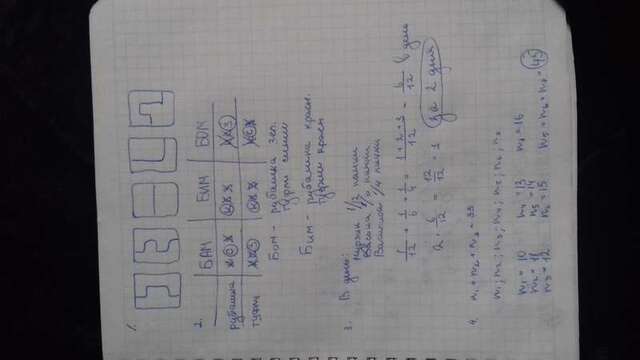 1.
2.
БАМ БИМ БОМ
рубашка
туфли
Бом - рубашка зел.
туфли синии
Бим - рубашка красн.
туфли красн
3. В день:
Мурзик 1/12 пачки
Васька 1/6 пачки
1/4 пачки
1/12 + 1/6 + 1/4 = 1+2+3/12 = 6/12 в день
2 · 6/12 = 12/12 = 1 за 2 дня
4. n₁ + n₂ + n₃ = 33
n₁; n₂; n₃; n₄; n₅; n₆; n₇
n₁ = 10 n₄ = 13 n₇ = 16
n₂ = 11 n₅ = 14
n₃ = 12 n₆ = 15 n₅ + n₆ + n₇ = 45